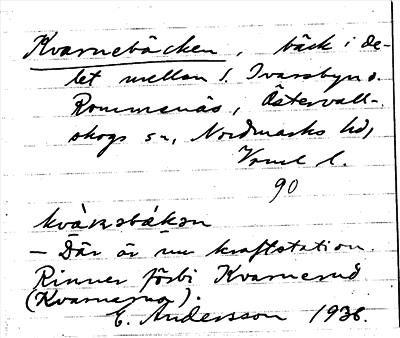 Kvarnebäcken, bäck i de-
let mellan l. Ivarsbyn o.
Rommenäs, Östervall-
skogs sn, Nordmarks hd,
Vrml l.
90
kvàrnəbäkən
– Där är nu kraftstation.
Rinner förbi Kvarnerud
(Kvarnarna).
E. Andersson 1936.